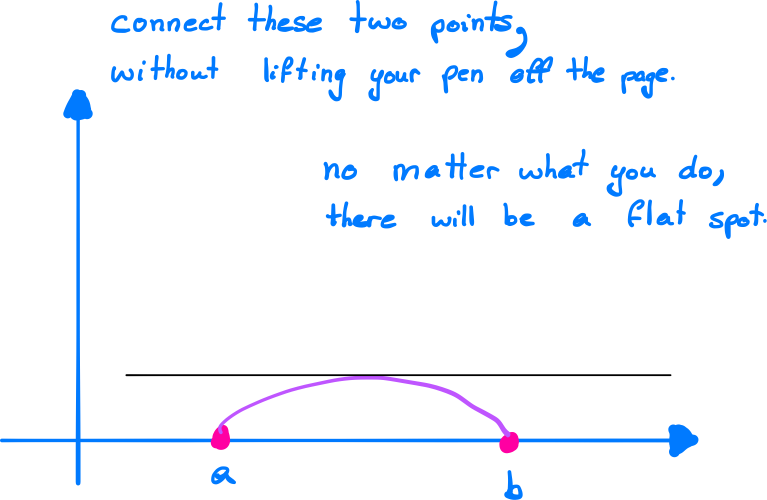 connect these two points,
without lifting your pen off the page.
no matter what you do,
there will be a flat spot.
a
b